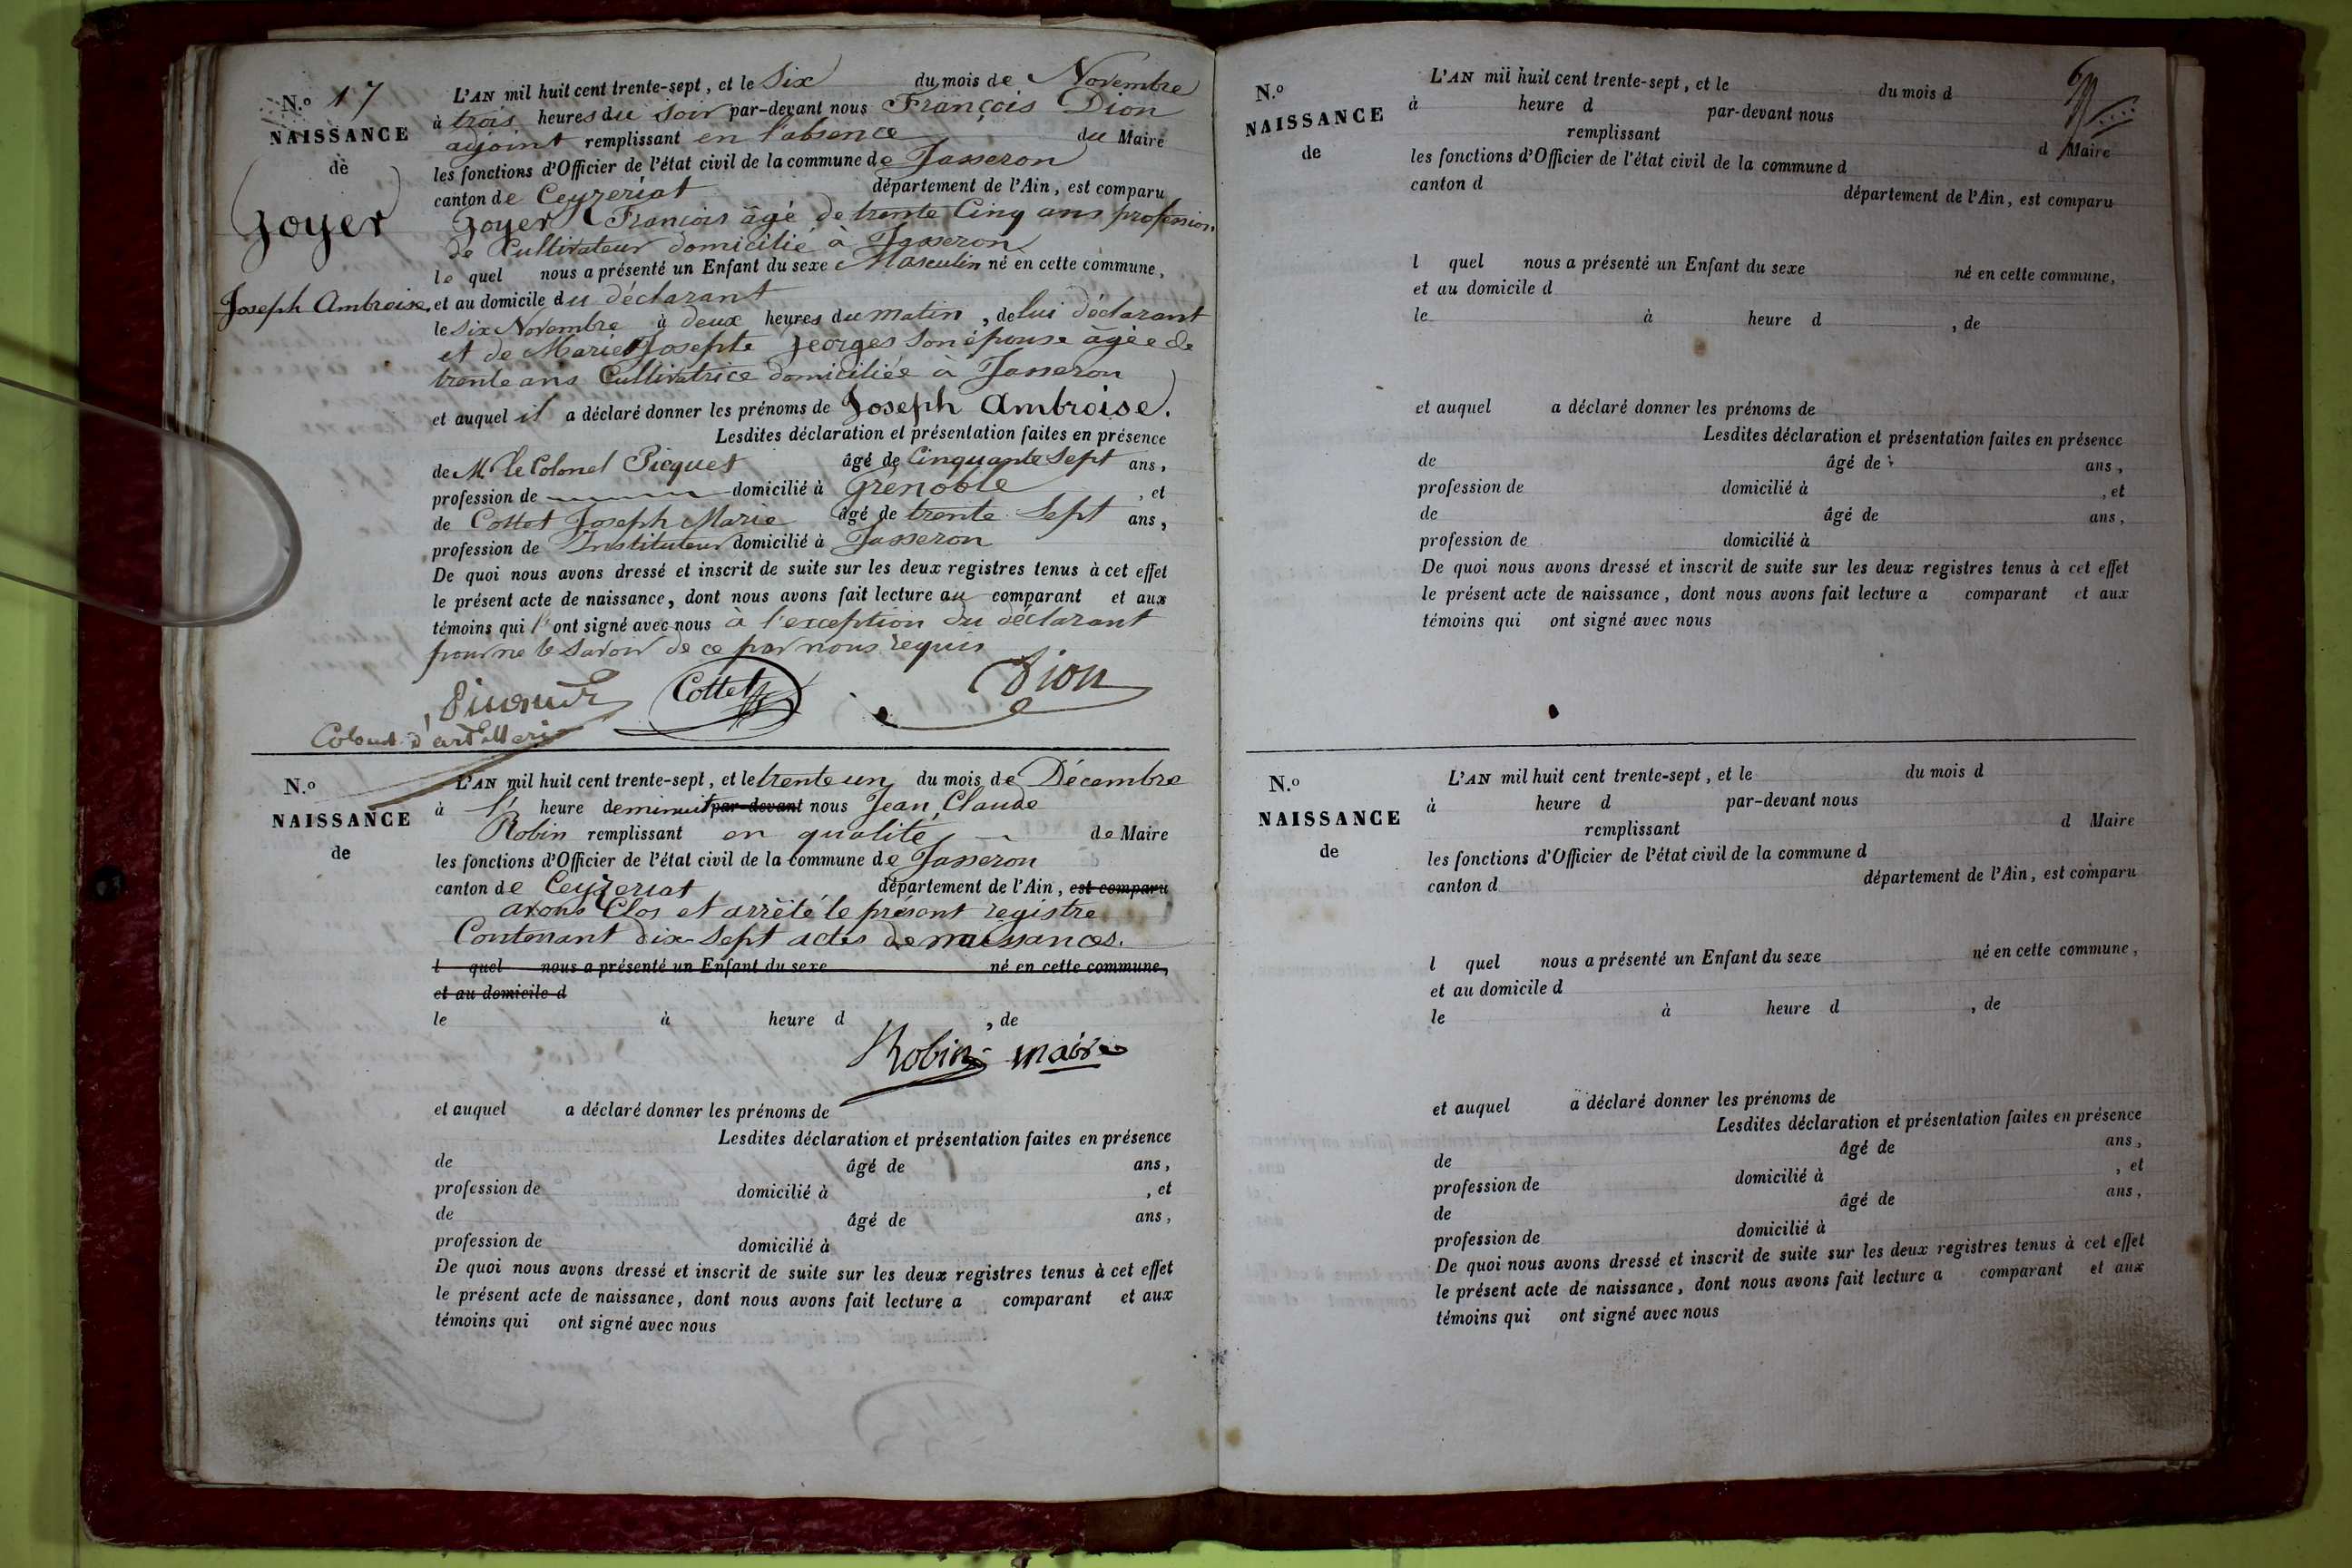 N.º 17
NAISSANCE
de
Joyer
Joseph Ambroise.
L'AN mil huit cent trente-sept, et le Six du mois de Novembre
à trois heures du soir par-devant nous François Dion
adjoint remplissant en l'absence du Maire
les fonctions d'Officier de l'état civil de la commune de Jasseron
canton de Ceyzeriat département de l'Ain, est comparu
Joyer François âgé de trente Cinq ans profession
de Cultivateur domicilié à Jasseron
le quel nous a présenté un Enfant du sexe Masculin né en cette commune,
et au domicile du déclarant
le six Novembre à deux heures du matin, de lui déclarant
et de Marie Josephte Georges son épouse âgée de
trente ans Cultivatrice domiciliée à Jasseron
et auquel il a déclaré donner les prénoms de Joseph Ambroise.
Lesdites déclaration et présentation faites en présence
de Mr le Colonel Picquet âgé de Cinquante Sept ans,
profession de domicilié à Grenoble, et
de Cottet Joseph Marie âgé de trente Sept ans,
profession de Instituteur domicilié à Jasseron
De quoi nous avons dressé et inscrit de suite sur les deux registres tenus à cet effet
le présent acte de naissance, dont nous avons fait lecture au comparant et aux
témoins qui l' ont signé avec nous à l'exception du déclarant
pour ne le savoir de ce par nous requis
Picquet Cottet Dion
Colonel d'artillerie
N.º
NAISSANCE
de
L'AN mil huit cent trente-sept, et le trente un du mois de Décembre
à l' heure de minuit par-devant nous Jean Claude
Robin remplissant en qualité de Maire
les fonctions d'Officier de l'état civil de la commune de Jasseron
canton de Ceyzeriat département de l'Ain, est comparu
avons Clos et arrêté le présent registre
Contenant dix-Sept actes de naissances.
l quel nous a présenté un Enfant du sexe né en cette commune,
et au domicile d
le à heure d , de
Robin maire
et auquel a déclaré donner les prénoms de
Lesdites déclaration et présentation faites en présence
de âgé de ans,
profession de domicilié à , et
de âgé de ans,
profession de domicilié à
De quoi nous avons dressé et inscrit de suite sur les deux registres tenus à cet effet
le présent acte de naissance, dont nous avons fait lecture a comparant et aux
témoins qui ont signé avec nous
N.º
NAISSANCE
de
L'AN mil huit cent trente-sept, et le du mois d
à heure d par-devant nous
remplissant d Maire
les fonctions d'Officier de l'état civil de la commune d
canton d département de l'Ain, est comparu
l quel nous a présenté un Enfant du sexe né en cette commune,
et au domicile d
le à heure d , de
et auquel a déclaré donner les prénoms de
Lesdites déclaration et présentation faites en présence
de âgé de ans,
profession de domicilié à , et
de âgé de ans,
profession de domicilié à
De quoi nous avons dressé et inscrit de suite sur les deux registres tenus à cet effet
le présent acte de naissance, dont nous avons fait lecture a comparant et aux
témoins qui ont signé avec nous
N.º
NAISSANCE
de
L'AN mil huit cent trente-sept, et le du mois d
à heure d par-devant nous
remplissant d Maire
les fonctions d'Officier de l'état civil de la commune d
canton d département de l'Ain, est comparu
l quel nous a présenté un Enfant du sexe né en cette commune,
et au domicile d
le à heure d , de
et auquel a déclaré donner les prénoms de
Lesdites déclaration et présentation faites en présence
de âgé de ans,
profession de domicilié à , et
de âgé de ans,
profession de domicilié à
De quoi nous avons dressé et inscrit de suite sur les deux registres tenus à cet effet
le présent acte de naissance, dont nous avons fait lecture a comparant et aux
témoins qui ont signé avec nous